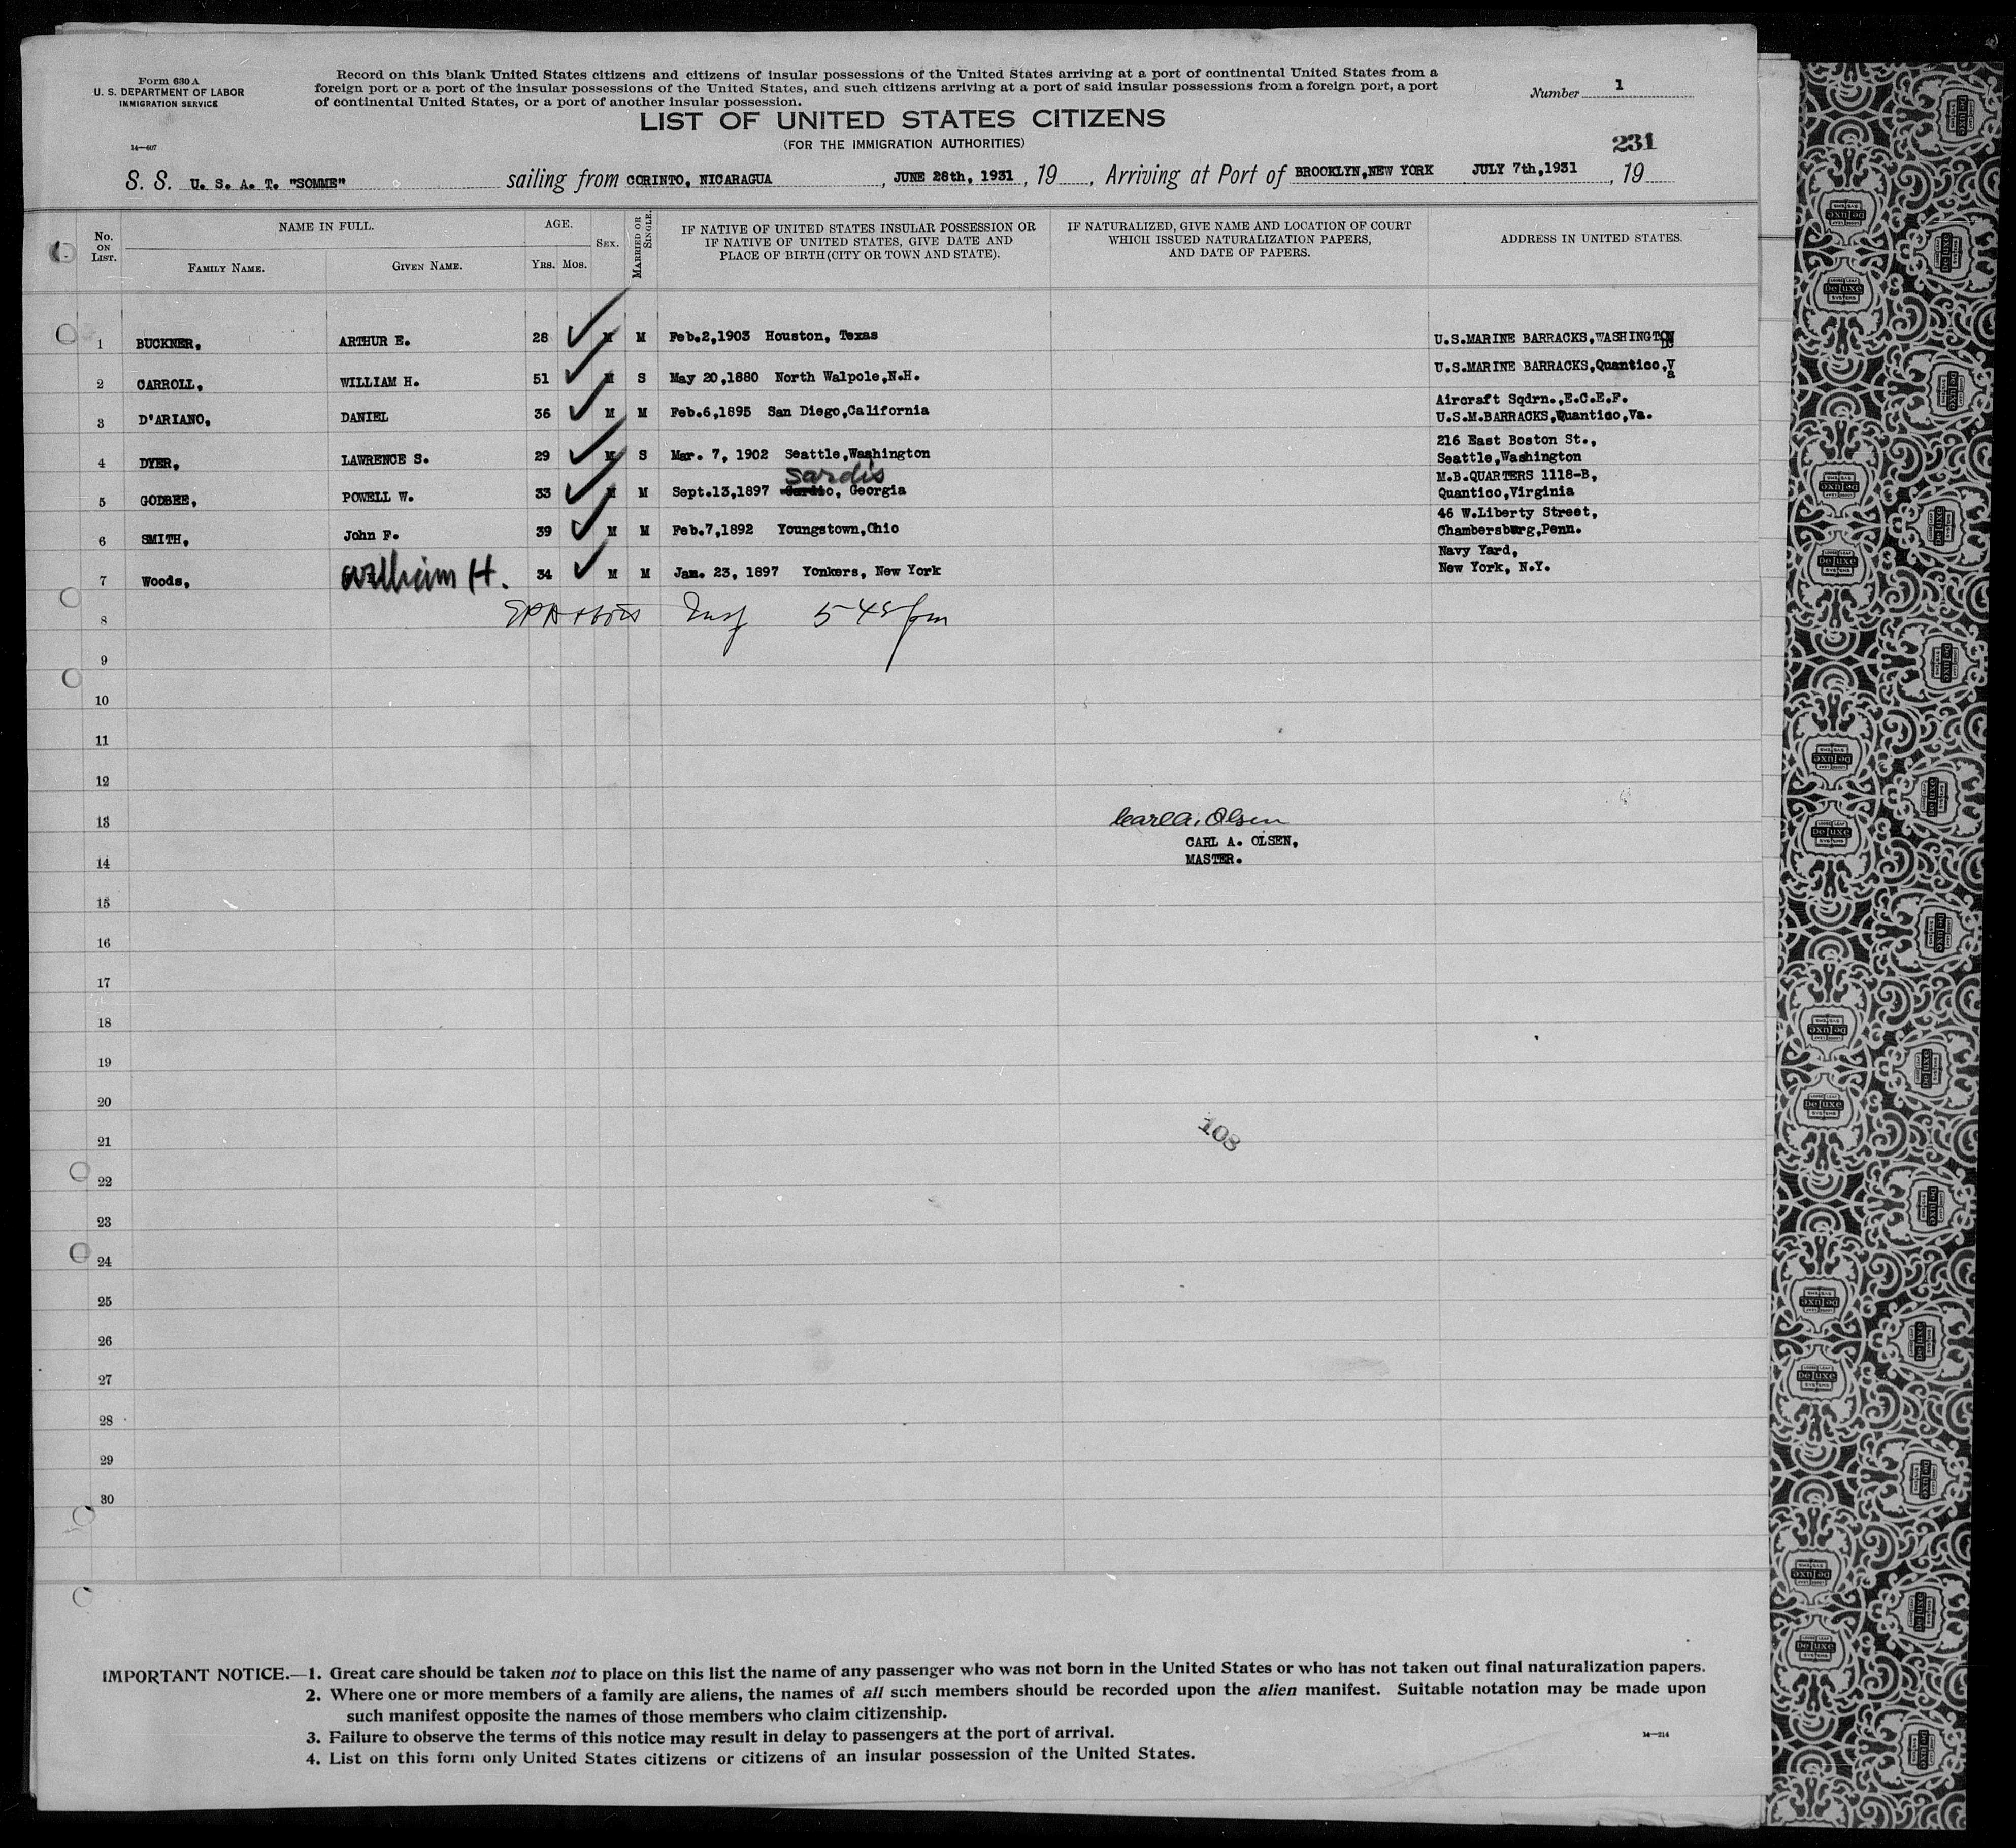 Form 630 A
U. S. DEPARTMENT OF LABOR
IMMIGRATION SERVICE
14—607
Record on this blank United States citizens and citizens of insular possessions of the United States arriving at a port of continental United States from a
foreign port or a port of the insular possessions of the United States, and such citizens arriving at a port of said insular possessions from a foreign port, a port
of continental United States, or a port of another insular possession.
Number 1
LIST OF UNITED STATES CITIZENS
(FOR THE IMMIGRATION AUTHORITIES)
231
S. S. U. S. A. T. "SOMME" sailing from CORINTO, NICARAGUA, JUNE 28th, 1931, 19, Arriving at Port of BROOKLYN,NEW YORK JULY 7th,1931, 19
No. ON LIST.
NAME IN FULL.
FAMILY NAME. GIVEN NAME.
AGE.
YRS. MOS.
SEX.
MARRIED OR SINGLE.
IF NATIVE OF UNITED STATES INSULAR POSSESSION OR
IF NATIVE OF UNITED STATES, GIVE DATE AND
PLACE OF BIRTH (CITY OR TOWN AND STATE).
IF NATURALIZED, GIVE NAME AND LOCATION OF COURT
WHICH ISSUED NATURALIZATION PAPERS,
AND DATE OF PAPERS.
ADDRESS IN UNITED STATES.
1 BUCKNER, ARTHUR E. 28 M M Feb.2,1903 Houston, Texas U.S.MARINE BARRACKS,WASHINGTON DC
2 CARROLL, WILLIAM H. 51 M S May 20,1880 North Walpole,N.H. U.S.MARINE BARRACKS,Quantico,Va
3 D'ARIANO, DANIEL 36 M M Feb.6,1895 San Diego,California Aircraft Sqdrn.,E.C.E.F.
U.S.M.BARRACKS,Quantico,Va.
4 DYER, LAWRENCE S. 29 M S Mar. 7, 1902 Seattle,Washington 216 East Boston St.,
Seattle,Washington
Sardis
5 GODBEE, POWELL W. 33 M M Sept.13,1897 Georgia M.B.QUARTERS 1118-B,
Quantico,Virginia
6 SMITH, John F. 39 M M Feb.7,1892 Youngstown,Ohio 46 W.Liberty Street,
Chambersburg,Penn.
7 Woods, William H. 34 M M Jan. 23, 1897 Yonkers, New York Navy Yard,
New York, N.Y.
8 Insp 5 45 pm
9
10
11
12
13 Carl A. Olsen
CARL A. OLSEN,
14 MASTER.
15
16
17
18
19
20
21
108
22
23
24
25
26
27
28
29
30
IMPORTANT NOTICE.—1. Great care should be taken not to place on this list the name of any passenger who was not born in the United States or who has not taken out final naturalization papers.
2. Where one or more members of a family are aliens, the names of all such members should be recorded upon the alien manifest. Suitable notation may be made upon
such manifest opposite the names of those members who claim citizenship.
3. Failure to observe the terms of this notice may result in delay to passengers at the port of arrival.
4. List on this form only United States citizens or citizens of an insular possession of the United States.
14—214